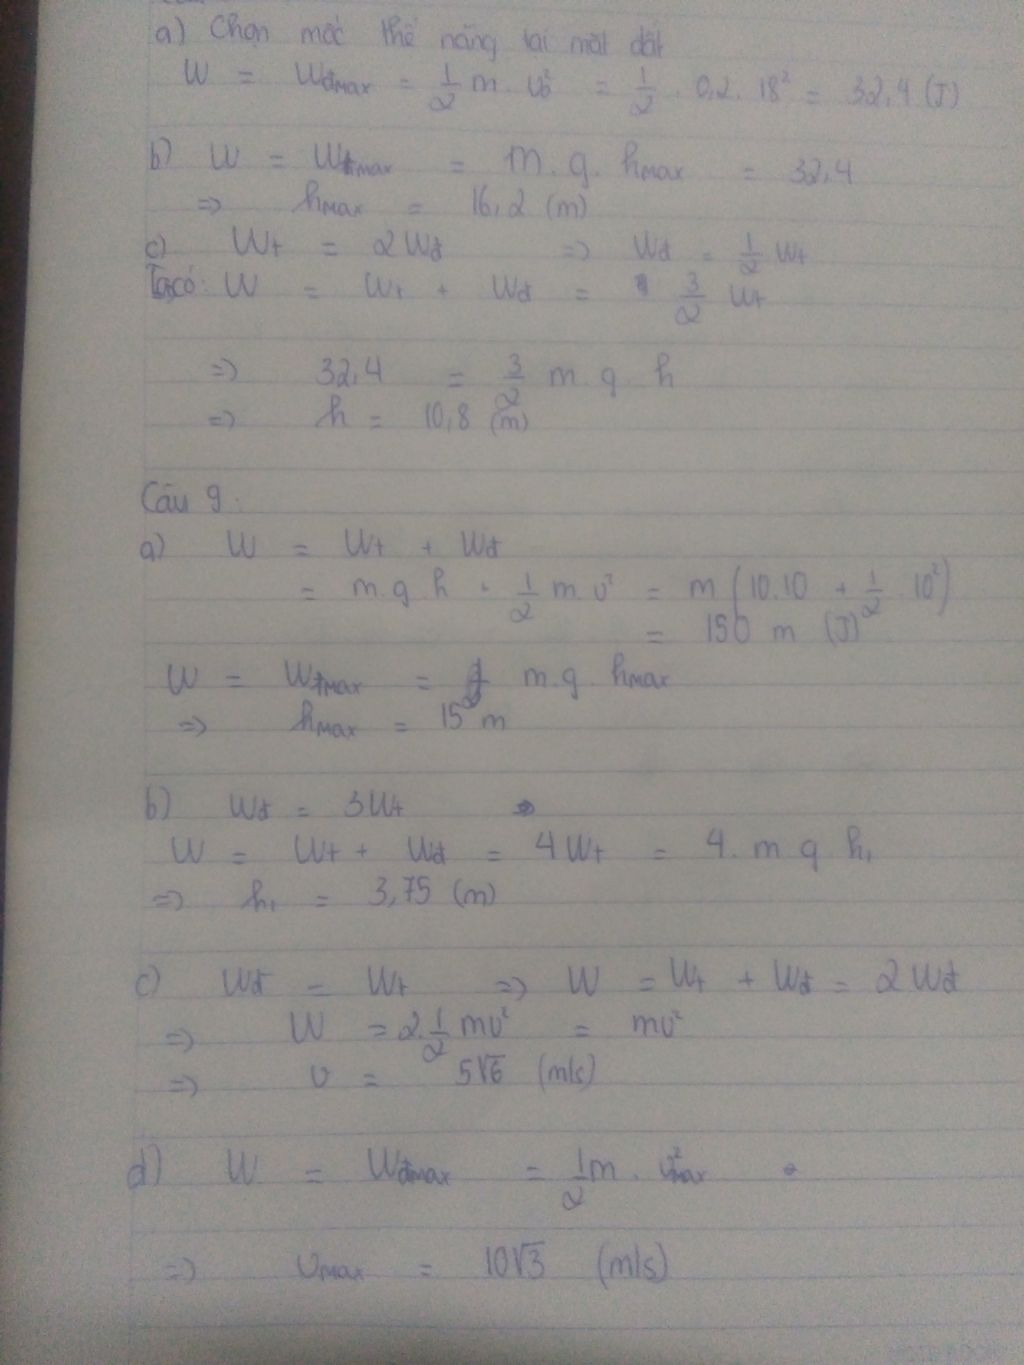 a) Chọn mốc thế năng tại mặt đất
W = Wđmax = 1/2 m. v₀² = 1/2 . 0,2. 18² = 32,4 (J)
b) W = Wtmax = m. g. hmax = 32,4
=> hmax = 16,2 (m)
c) Wt = 2Wđ => Wđ = 1/2 Wt
Ta có: W = Wt + Wđ = 3/2 Wt
=> 32,4 = 3/2 m. g. h
=> h = 10,8 (m)
Câu 9:
a) W = Wt + Wđ
= m.g.h + 1/2 m.v² = m(10.10 + 1/2 . 10²)
= 150 m (J)
W = Wtmax = m.g. hmax
=> hmax = 15 m
b) Wđ = 3Wt
W = Wt + Wđ = 4Wt = 4. m g h₁
=> h₁ = 3,75 (m)
c) Wđ = Wt => W = Wt + Wđ = 2Wđ
=> W = 2.1/2 mv² = mv²
=> v = 5√6 (m/s)
d) W = Wđmax = 1/2 m. v²max
=> vmax = 10√3 (m/s)